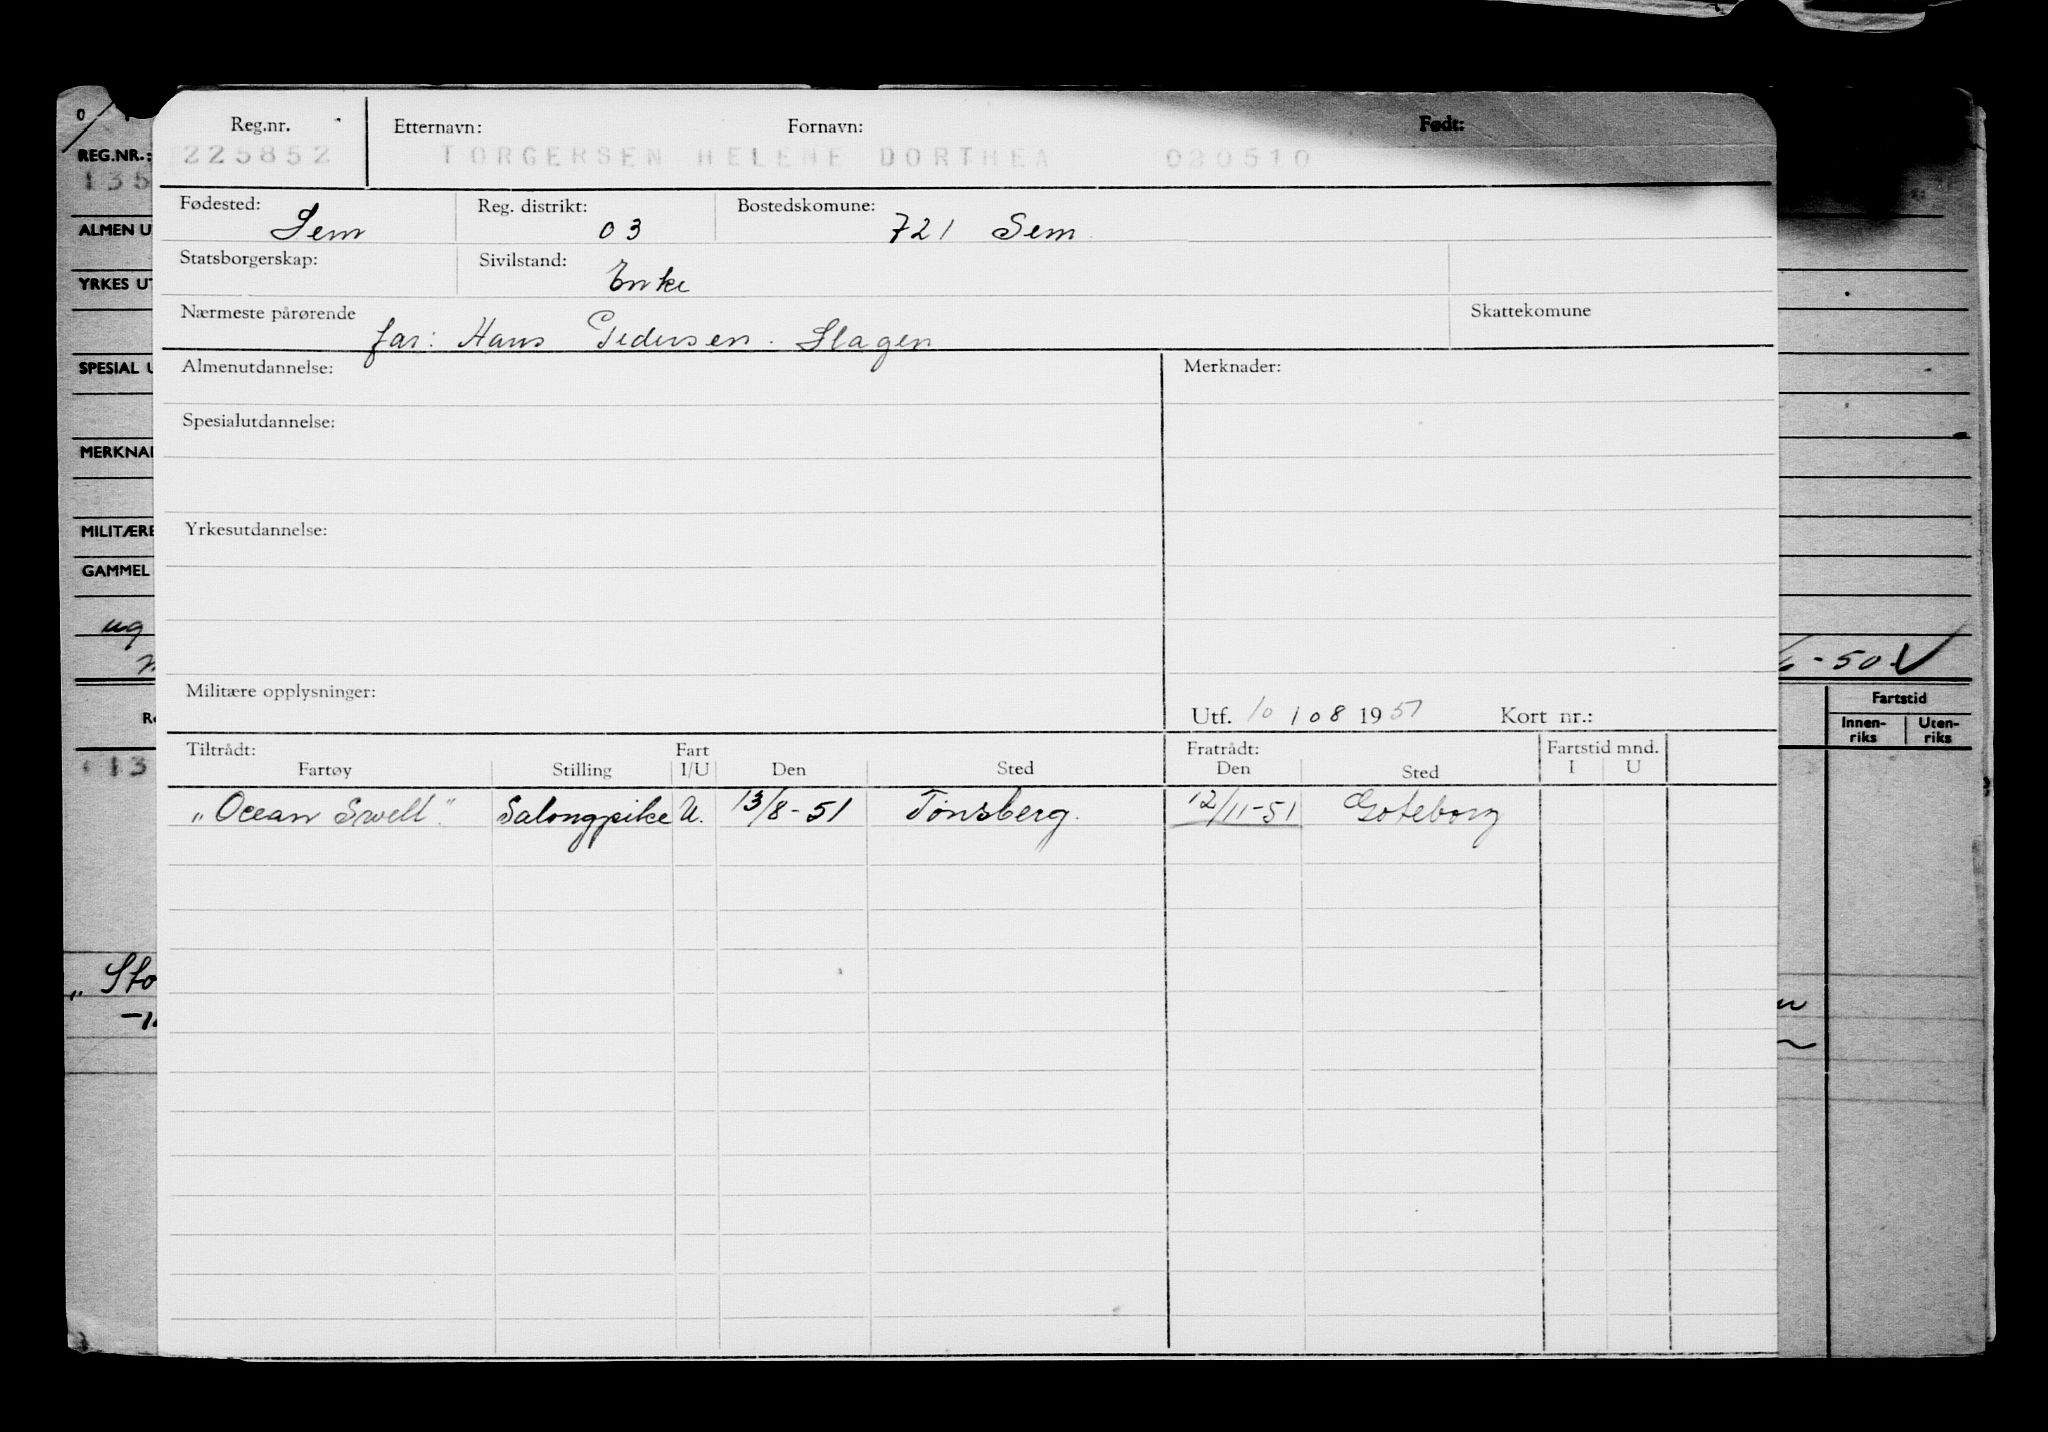 Reg.nr. Etternavn: Fornavn: Født:
225852 TORGERSEN HELENE DORTHEA 020510
Fødested: Sem Reg. distrikt: 03 Bostedskomune: 721 Sem
Statsborgerskap: Sivilstand: Enke
Nærmeste pårørende far: Hans Pedersen. Slagen Skattekomune
Almenutdannelse: Merknader:
Spesialutdannelse:
Yrkesutdannelse:
Militære opplysninger: Utf. 10 / 08 1951 Kort nr.:
Tiltrådt: Fart Fratrådt: Fartstid mnd.
Fartøy Stilling I/U Den Sted Den Sted I U
"Ocean Swell". Salongpike U. 13/8-51 Tønsberg. 12/11-51 Gøteborg
REG.NR.:
135
ALMEN U
YRKES UT
SPESIAL U
MERKNA
MILITÆRE
GAMMEL
ug
-50
Fartstid
Innen-
riks
Uten-
riks
13
"Sto